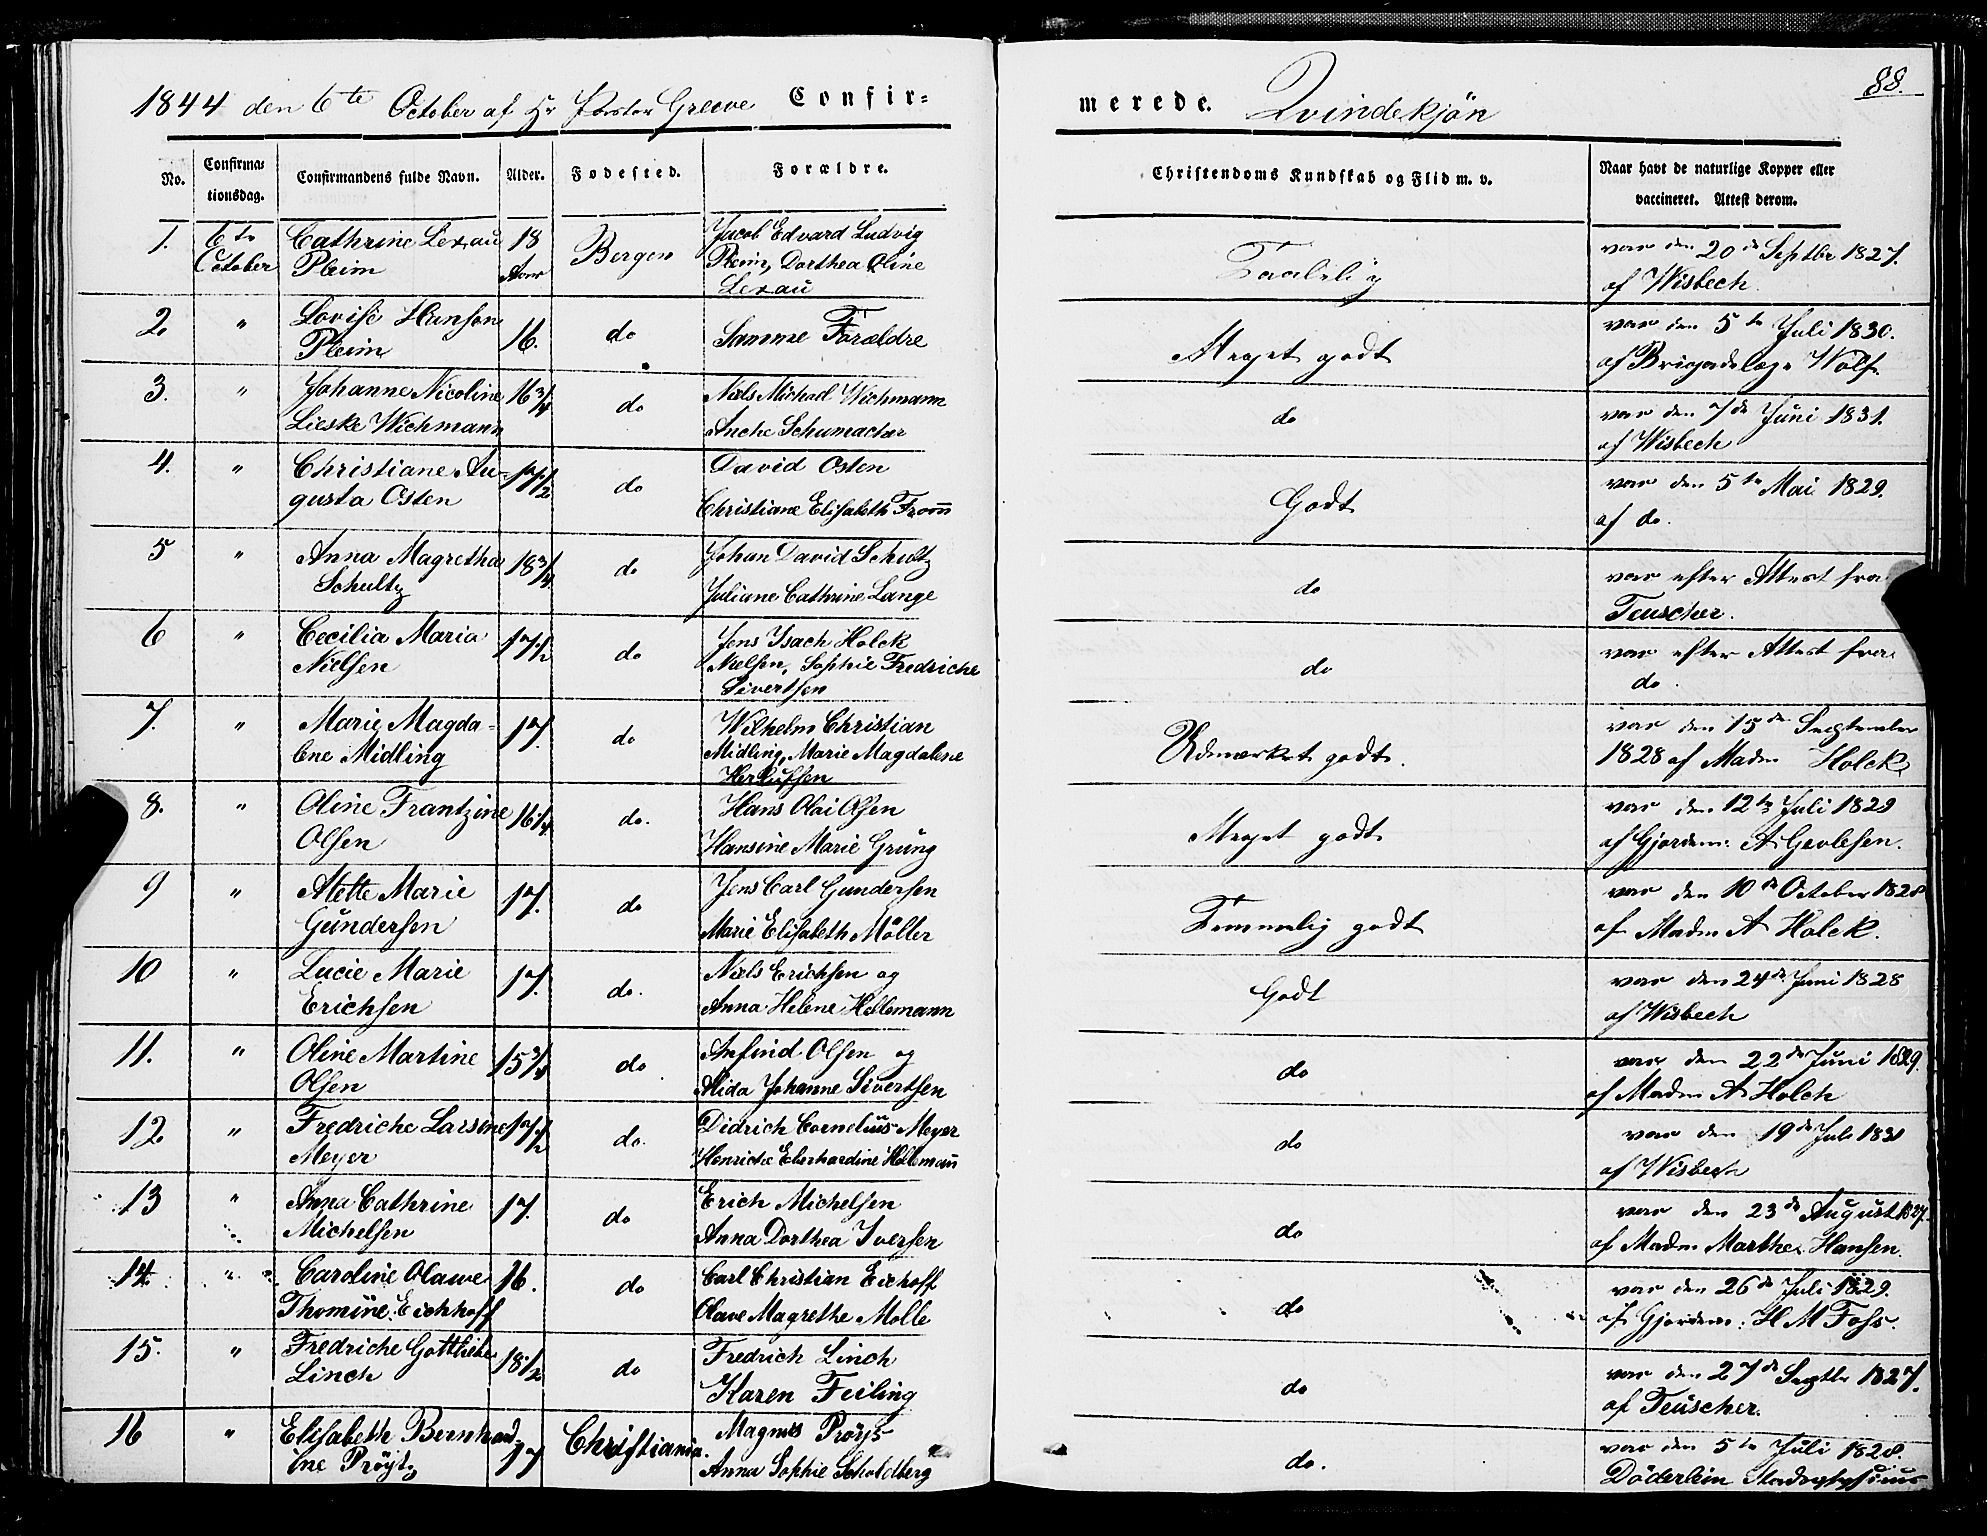 1844 den 6te October af Hr Pastor Greeve Confir=
merede. Qvindekjön
88.
No. Confirma= tionsdag. Confirmandens fulde Navn. Alder. Fødested. Forældre. Christendoms Kundskab og Flid m. v. Naar havt de naturlige Kopper eller vaccineret. Attest derom.
1. 6te October Cathrine Lexau Pleim 18 Aar Bergen Jacob Edvard Ludvig Pleim, Dorthea Oline Lexau Taalelig var den 20de Septbr 1827. af Wisbech.
2. " Lovise Hanson Pleim 16. do Samme Forældre Meget godt var den 5te Juli 1830. af Brigadelæge Wolf
3. " Johanne Nicoline Lieske Wichmann 16 3/4 do Niels Michael Wichmann Anche Schumacher do var den 7de Juni 1831. af Wisbech
4. " Christiane Au- gusta Osten 17 1/2 do David Osten Christiane Elisabeth Fromm Godt var den 5te Mai 1829. af do.
5 " Anna Magretha Schultz 18 3/4 do Johan David Schultz Juliane Cathrine Lange do var efter Attest fra Teuscher.
6 " Cecilia Maria Nielsen 17 1/2 do Jens Isach Holck Nielsen, Sophie Fredriche Sivertsen do var efter Attest fra do.
7. " Marie Magda- lene Midling 17. do Wilhelm Christian Midling, Marie Magdalene Herlufsen Udmærket godt. var den 15de September 1828 af Madm Holck
8. " Oline Frantzine Olsen 16 1/4 do. Hans Olai Olsen Hansine Marie Grung Meget godt var den 12te Juli 1829 af Gjordem: A Gevlesen.
9 " Mette Marie Gundersen 17. do Jens Carl Gundersen Marie Elisabeth Möller Temmelig godt var den 10de October 1828 af Madm A Holck.
10 " Lucie Marie Erichsen 17. do. Niels Erichsen og Anna Helene Hellemann Godt var den 24de Juni 1828 af Wisbech
11. " Oline Martine Olsen 15 3/4 do Anfind Olsen og Alida Johanne Sivertsen do var den 22de Juni 1829. af Madm A Holch
12 " Fredriche Larsine Meyer 17 1/2 do. Didrich Cornelius Meyer Henriche Eberhardine Hellemann do var den 19de Juli 1830 af Wisbech
13 " Anna Cathrine Michelsen 17. do Erich Michelsen Anna Dorthea Iversen do var den 23de August 1827. af Madm Marthe Hansen.
14. " Caroline Olawe Thomine Eichhoff 16. do Carl Christian Eichoff Olave Magrethe Molle do var den 26de Juli 1829. af Gjordem: H M Foss.
15. " Fredriche Gottliebe Linch 18 1/2 do Fredrich Linch Karen Feiling do var den 27de Septbr 1827. af Teuscher.
16 " Elisabeth Bernhard- ine Pröytz 17 Christiania. Magnus Pröys Anna Sophie Scholdberg do. var den 5te Juli 1828. Döderlein Stadsphysicus